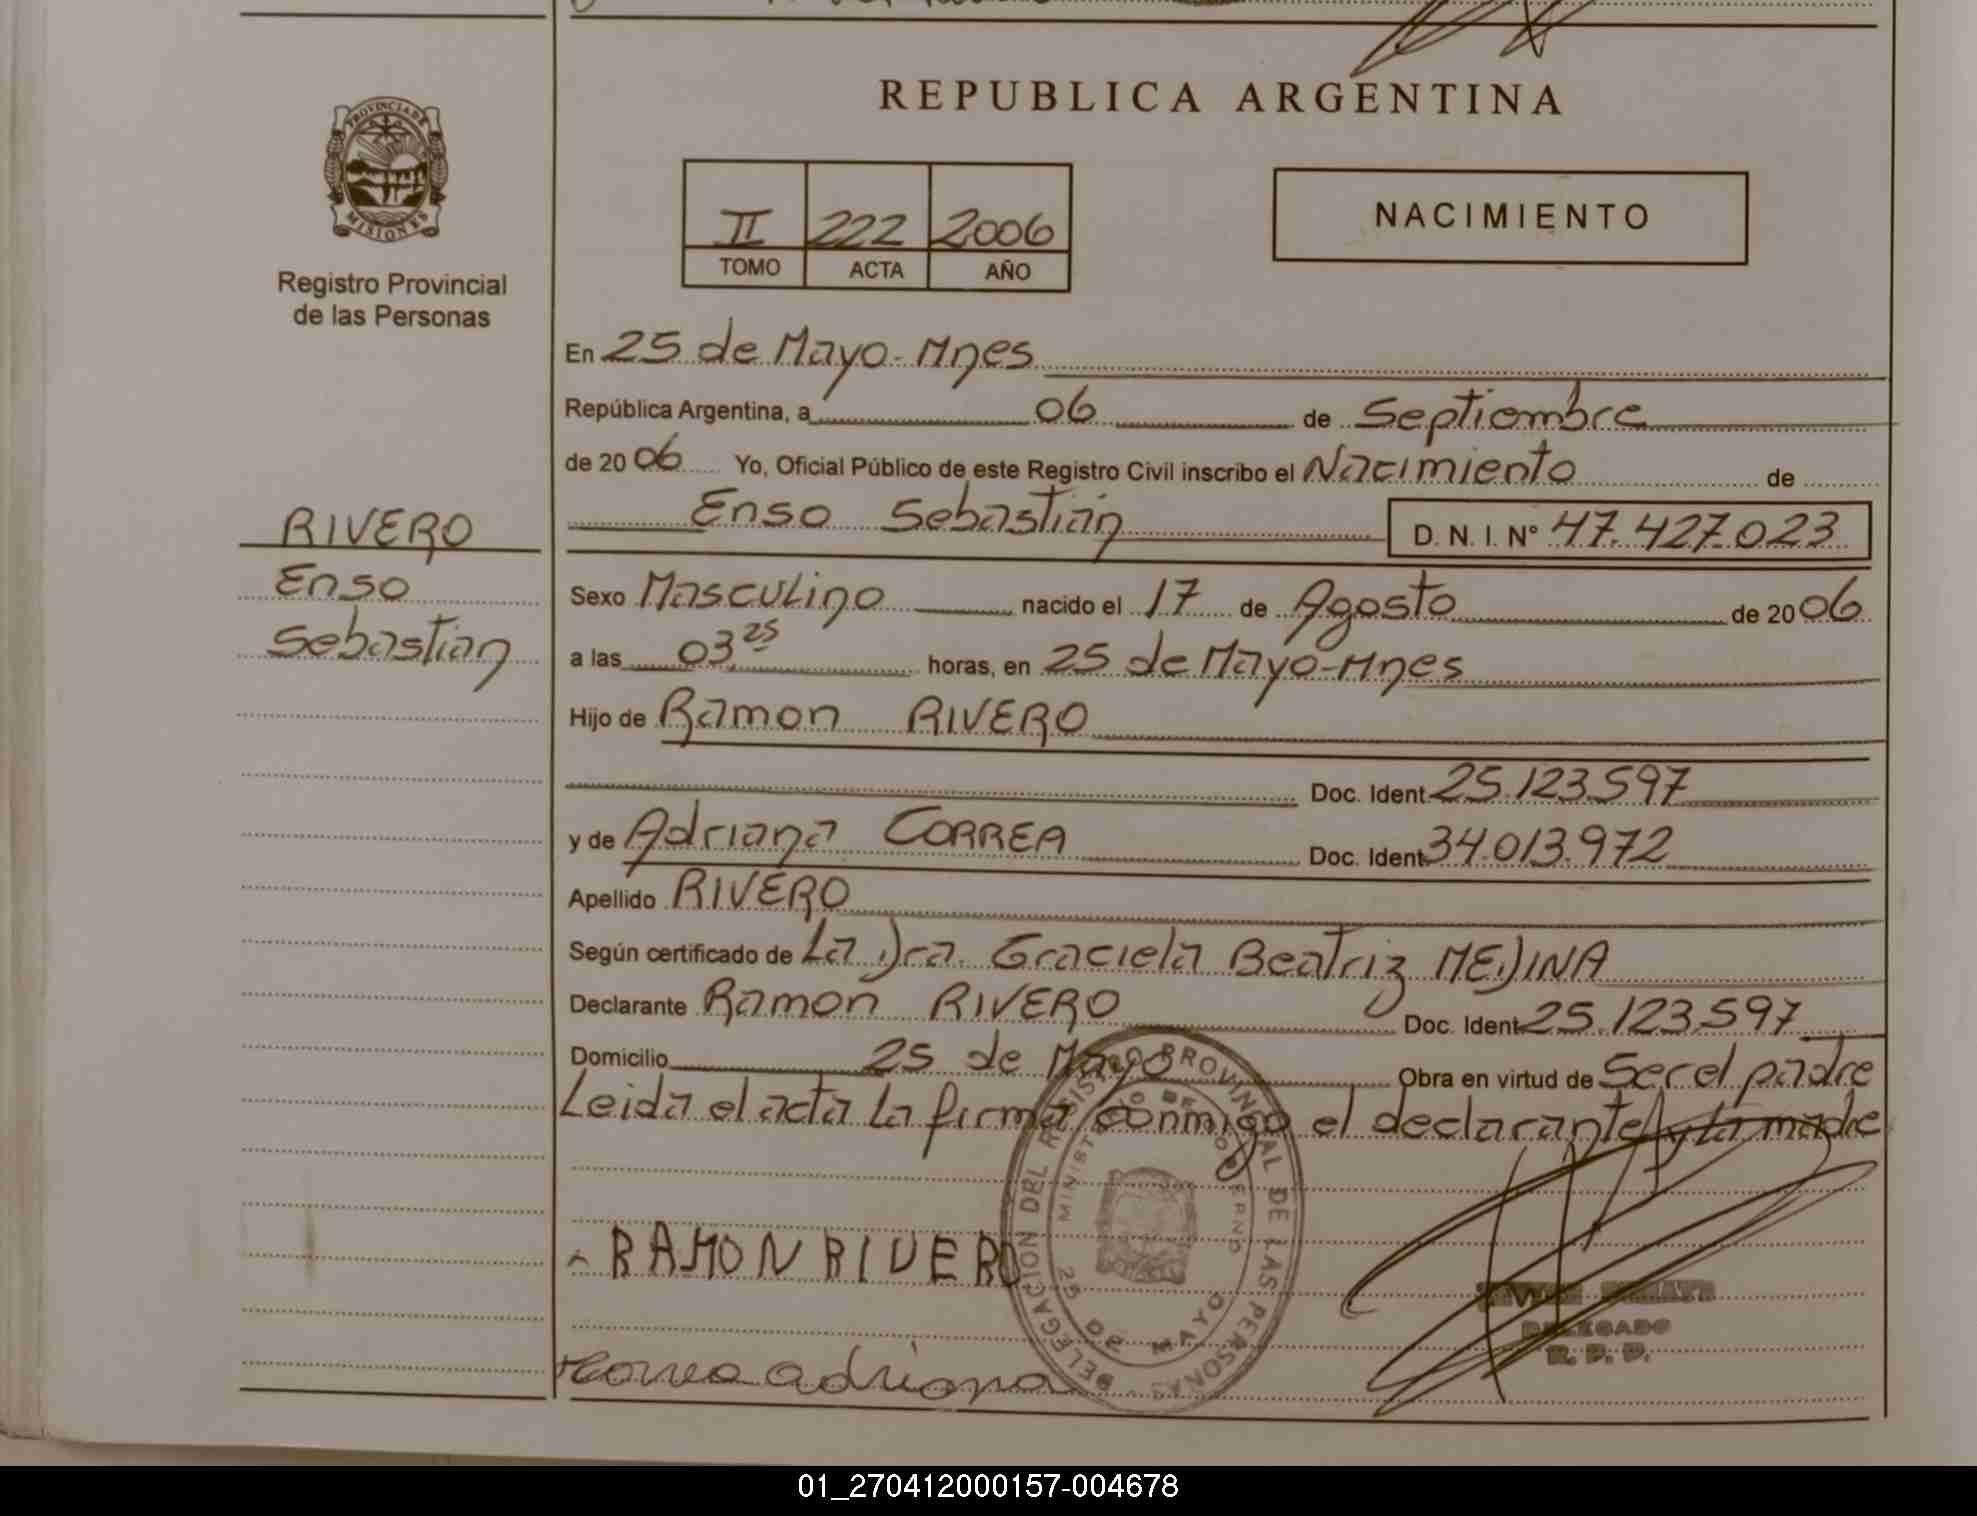 REPUBLICA ARGENTINA
PROVINCIA DE MISIONES
II 222 2006
TOMO ACTA AÑO
NACIMIENTO
Registro Provincial
de las Personas
RIVERO
Enso
Sebastian
En 25 de Mayo-Mnes
República Argentina, a 06 de Septiembre
de 2006 Yo, Oficial Público de este Registro Civil inscribo el Nacimiento de
Enso Sebastian D. N. I. Nº 47.427.023
Sexo Masculino nacido el 17 de Agosto de 2006
a las 03,25 horas, en 25 de Mayo-Mnes
Hijo de Ramon RIVERO
Doc. Ident 25.123.597
y de Adriana CORREA Doc. Ident 34.013.972
Apellido RIVERO
Según certificado de La Dra. Graciela Beatriz MEDINA
Declarante Ramon RIVERO Doc. Ident 25.123.597
Domicilio 25 de Mayo Obra en virtud de Ser el padre
Leida el acta la firma conmigo el declarante y la madre
RAMON RIVERO
Correa adriana
DELEGACION DEL REGISTRO PROVINCIAL DE LAS PERSONAS
MINISTERIO DE GOBIERNO
25 DE MAYO
DELEGADO
R. P. P.
01_270412000157-004678